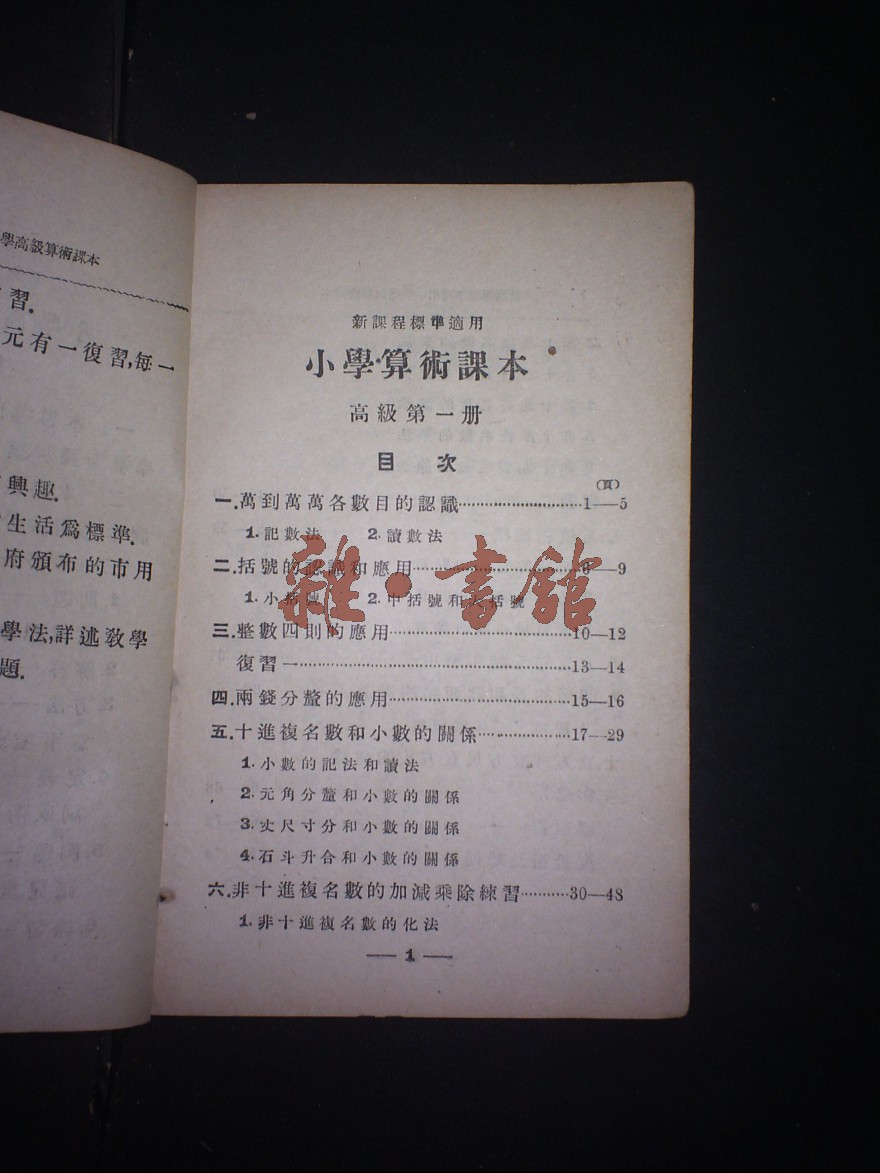 學高級算術課本
習.
元有一復習,每一
興趣.
生活爲標準.
府頒布的市用
學法,詳述教學
題.
新課程標準適用
小學算術課本
高級第一册
目次
(頁)
一.萬到萬萬各數目的認識……1—5
1.記數法 2.讀數法
二.括號的認識和應用……6—9
1.小括號 2.中括號和大括號
三.整數四則的應用……10—12
復習一……13—14
四.兩錢分釐的應用……15—16
五.十進複名數和小數的關係……17—29
1.小數的記法和讀法
2.元角分釐和小數的關係
3.丈尺寸分和小數的關係
4.石斗升合和小數的關係
六.非十進複名數的加減乘除練習……30—48
1.非十進複名數的化法
— 1 —
雜·書館